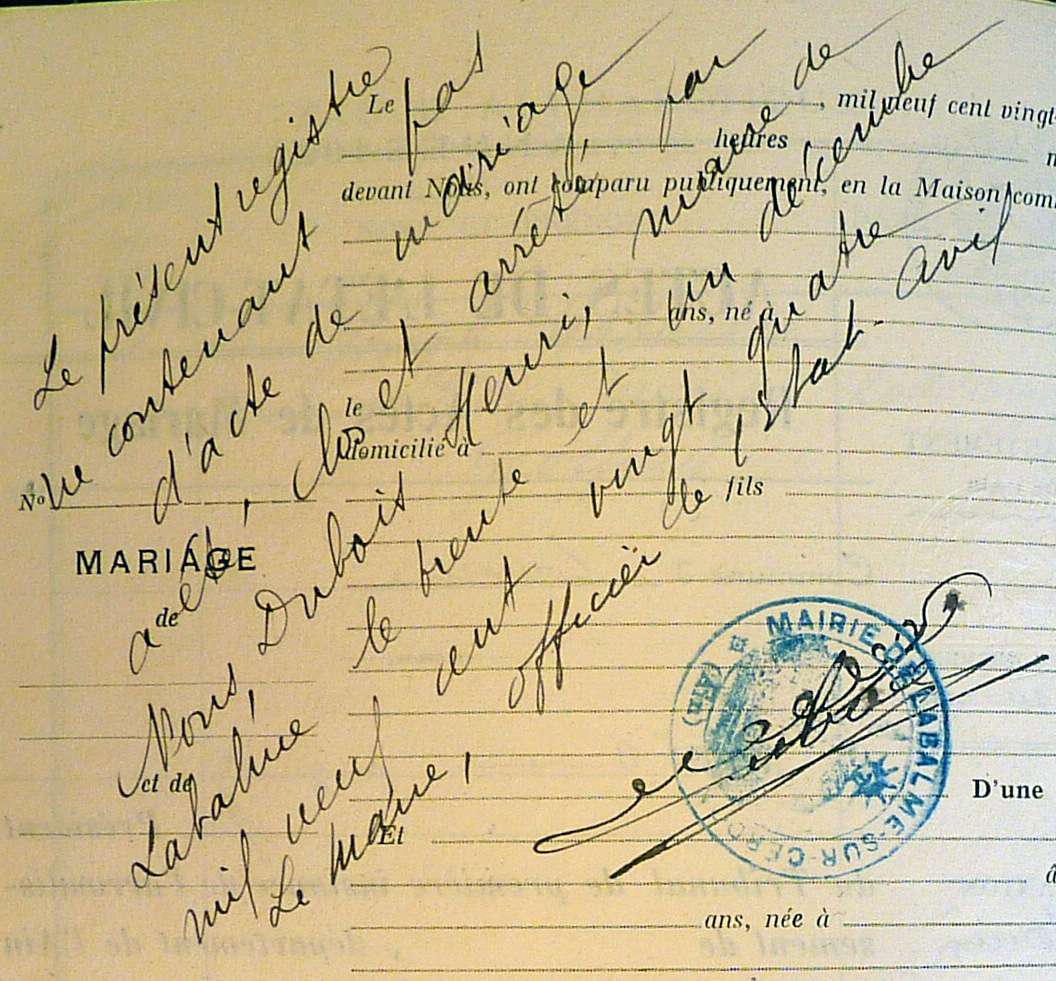 Le présent registre
ne contenant pas
d'acte de mariage
a été, clos et arrêté, par
Nous, Dubois Henri, maire de
Labalme le trente et un décembre
mil neuf cent vingt quatre
Le Maire, officier de l'Etat civil
Le , mil neuf cent vingt-
heures
devant Nous, ont comparu publiquement, en la Maison com
ans, né à
le
domicilié à
fils
N°
MARIAGE
de
et de
D'une
Et
ans, née à
MAIRIE DE LABALME-SUR-CERD
(Ain)